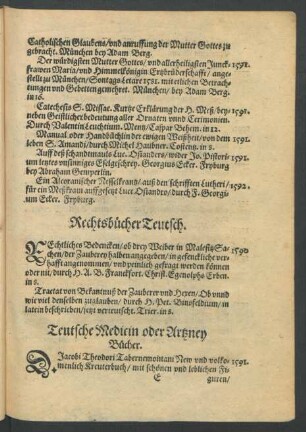 Catholischen Glaubens/vnd anruffung der Mutter Gottes zu
gebracht. München bey Adam Berg.
Der würdigsten Mutter Gottes/vnd allerheiligsten Junck- 1591.
frawen Maria/vnd Himmelkönigin Ertzbruderschafft/ ange-
stellt zu München/Sontags Letare 1581. mit etlichen Betrach-
tungen vnd Gebetten gemehret. München/ bey Adam Berg.
in 16.
Catechesis S. Missae. Kurtze Erklärung der H. Meß/bey- 1592.
neben Geistlicher bedeutung aller Ornaten vnnd Cerimonien.
Durch Valentin Leuchtium. Mentz/Caspar Behem. in 12.
Manual oder Handbüchlin der ewigen Weißheit/von dem 1591.
leben S. Amandi/durch Michel Haubner. Costentz. in 8.
Auff deß schandtmauls Luc. Osianders/ wider Jo. Pistorii 1591.
um letztes vnsinniges Eselgeschrey. Georgius Ecker. Fryburg
bey Abraham Gemperlin.
Ein Alcoranischer Nesselkrantz/ auß den schrifften Lutheri/ 1592.
für ein Meßkram auffgesetzt Luce Osiandro/durch F. Georgi-
um Ecker. Fryburg.
Rechtsbücher Teutsch.
REchtliches Bedencken/ob drey Weiber in Malefitz Sa- 1590
chen/der Zauberey halben angegeben/in gefenckliche ver-
hafft angenommen/ vnd peinlich gefragt werden können
oder nit/durch H. A. B. Franckfort. Christ. Egenolphs Erben.
in 8.
Tractat von Bekantnuß der Zauberer vnd Hexen/Ob vnnd
wie viel denselben zuglauben/ durch H. Pet. Binsfeldium/ in
latein beschrieben/jetzt verteutscht. Trier. in 8.
Teutsche Medicin oder Artzney
Bücher.
D. Jacobi Theodori Tabernemontani New vnd volko- 1591.
menlich Kreuterbuch/ mit schönen vnd leblichen Fi-
E guren/